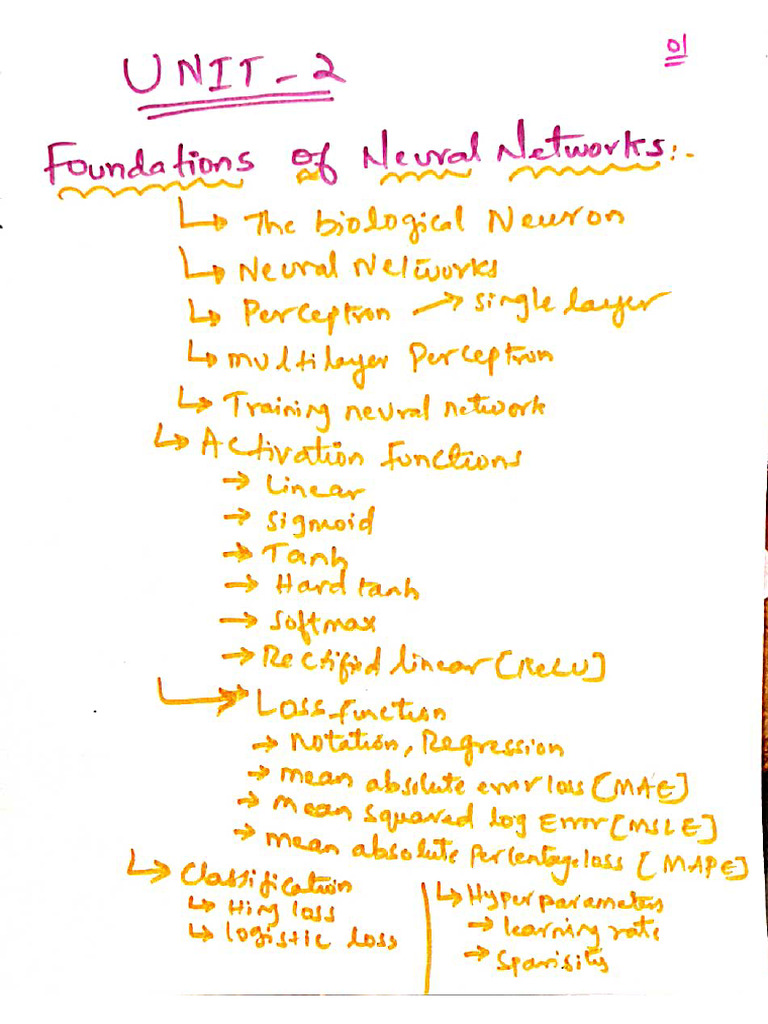 01
UNIT - 2
Foundations of Neural Networks:-
↳ The biological Neuron
↳ Neural Networks
↳ Perceptron → single layer
↳ multilayer Perceptron
↳ Training neural network
↳ Activation functions
→ Linear
→ Sigmoid
→ Tanh
→ Hard tanh
→ Softmax
→ Rectified linear [ReLU]
↳ Loss function
→ Notation, Regression
→ mean absolute error loss [MAE]
→ mean squared log Error [MSLE]
→ mean absolute Percentage loss [MAPE]
↳ Classification
↳ Hing loss
↳ logistic loss
↳ Hyper parameters
→ learning rate
→ Sparisity